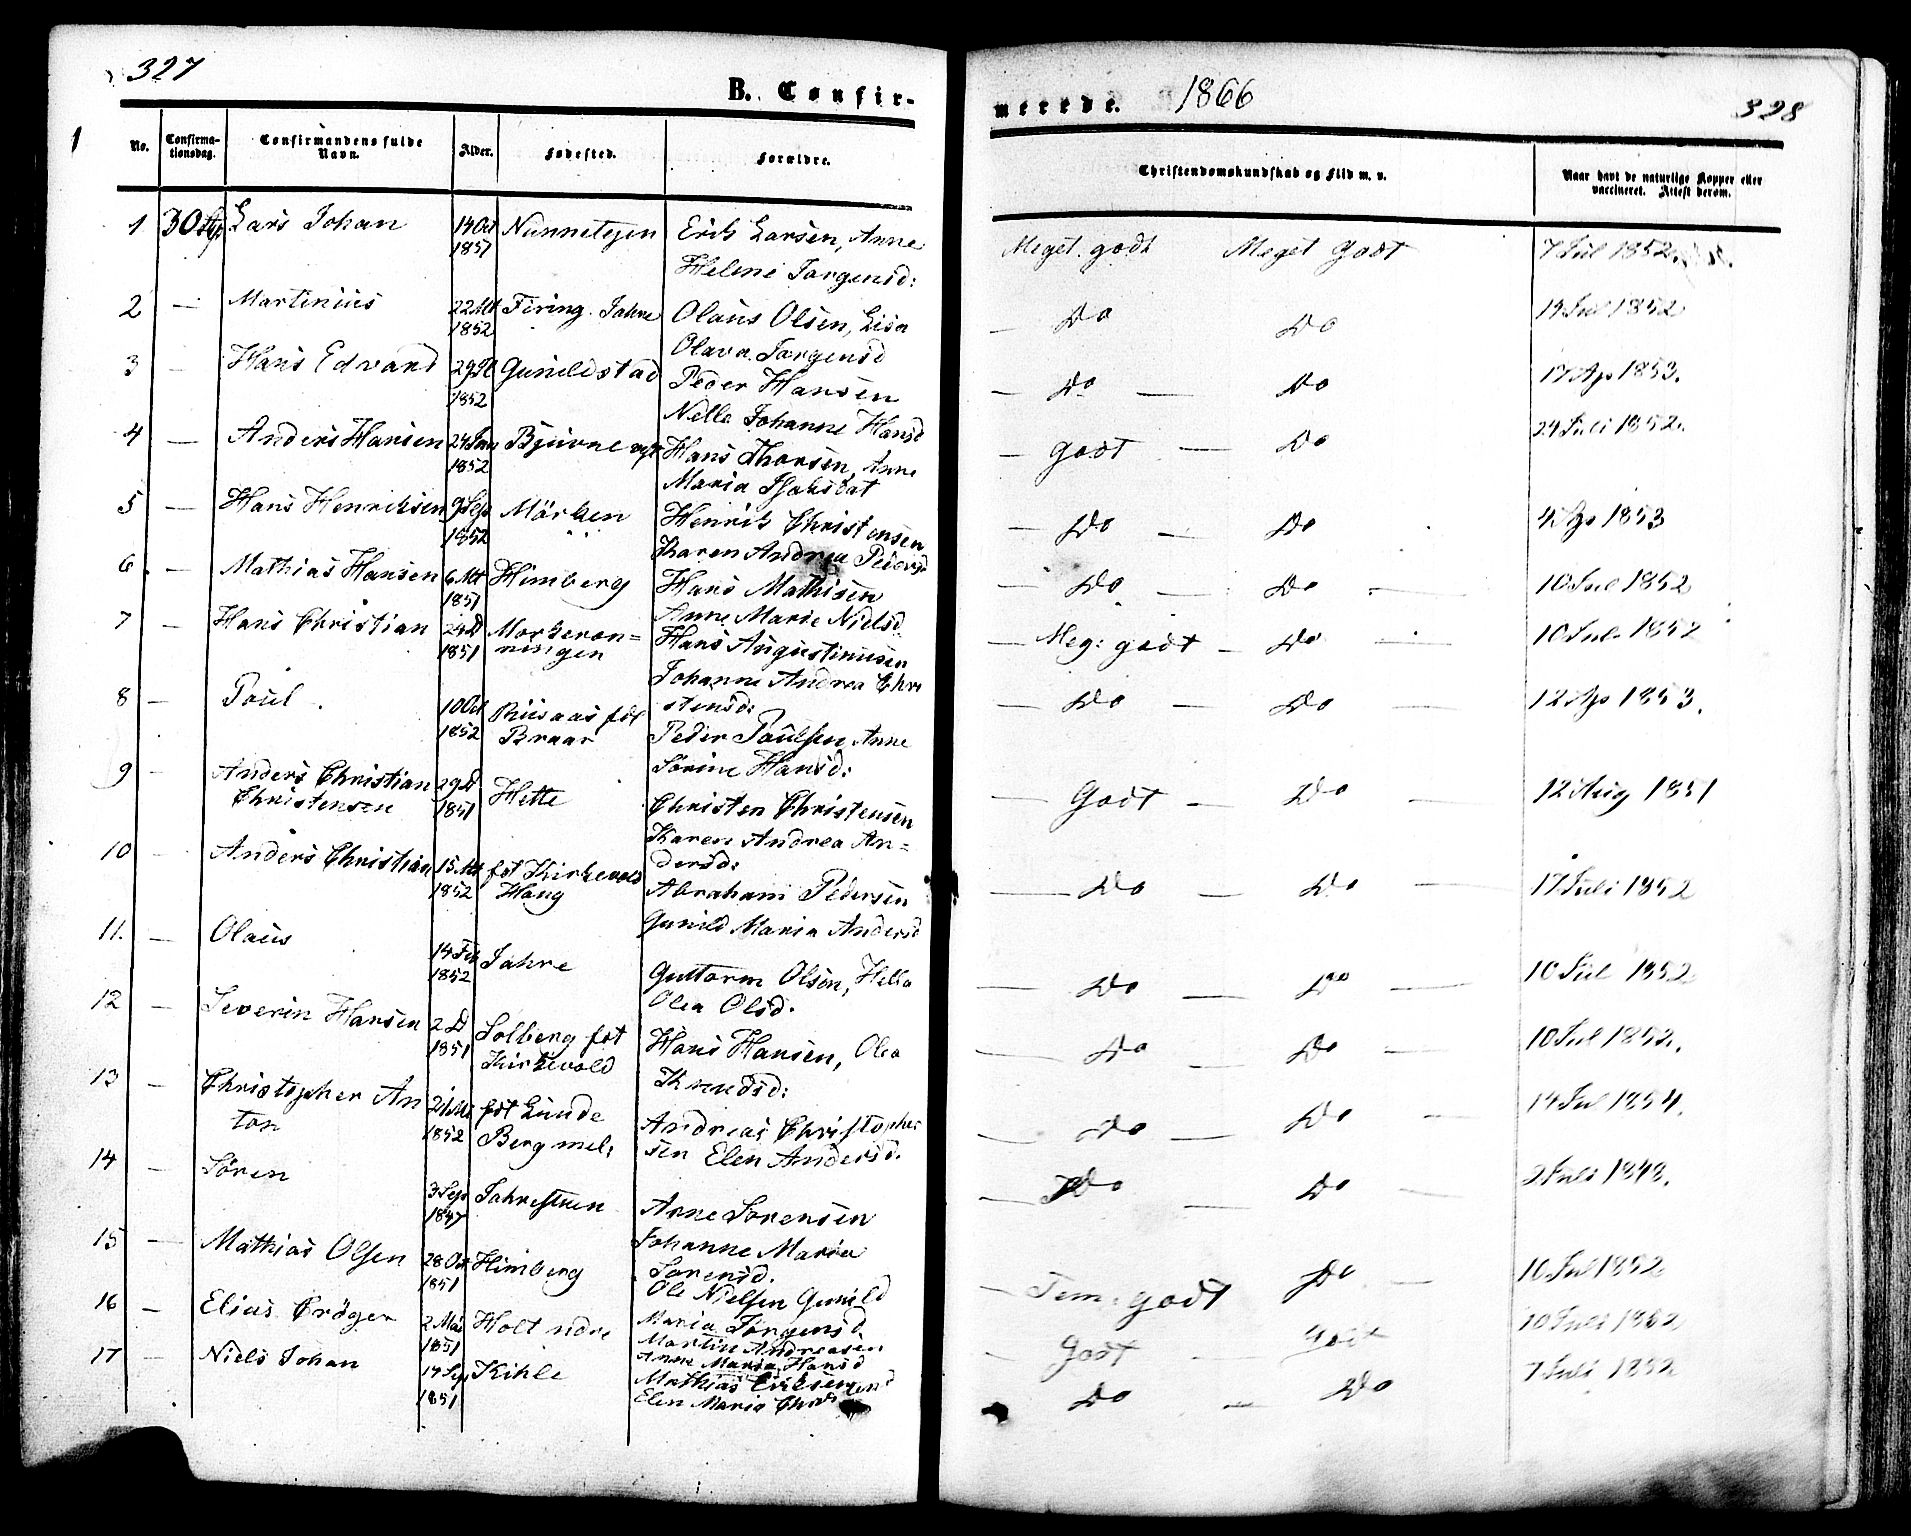 327
B. Confir-
1
No.
Confirma-
tionsdag.
Confirmandens fulde
Navn.
Alder.
Fødested.
Forældre.
1 30 Lars Johan 14 Oct Nunnetejen Erik Larsen, Anne
1851 Helene Jørgensd:
2 — Martinius 22 1852 Firing. Jahre Olaus Olsen, Lisa
Olava Jørgensd
3 — Hans Edvard 29 1852 Gunildstad Peder Hansen
Nelle Johanne Hansd
4 — Anders Hansen 24 Jan 1852 Hans Thorsen, Anne
Maria
5 — Hans Henriksen 9 Sep 1852 Mörken Henrik Christensen
Karen Andrea Pedersd
6 — Mathias Hansen 6 1851 Himberg Hans Mathisen
Anne Marie Nielsd
7 — Hans Christian 24 D 1851 Hans Augustinusen
ningen Johanne Andrea Chri
stensd:
8 — Poul 10 Oct 1852 Riisaas fdt
Braar Peder Poulsen Anne
Sörine Hansd:
9 — Anders Christian
Christensen 29 D 1851 Hette Christen Christensen
Karen Andrea An=
dersd:
10 — Anders Christian 15 1852 fdt Kirkevold
Haug Abraham Pedersen
Gunild Maria Andersd
11. — Olaus 14 Feb 1852 Jahre Guttorm Olsen, Hella
Olea Olsd.
12 — Severin Hansen 2 D 1851 Solberg fdt
Kirkevold Hans Hansen, Olea
Knudsd:
13 — Christopher An
ton 21 1852 fdt Lunde
Berg mel: Andreas Christopher
sen Elen Andersd.
14 — Sören 3 Sep 1847 Arne Sorensen
Johanne Maria
Sorensd.
15 — Mathias Olsen 28 Oct 1851 Himberg Ole Nielsen Gunild
Maria Jörgensd
16 — Elias Cröger 2 Mai 1851 Holt ndre Martin Andreasen
Anne Maria Hansd
17 — Niels Johan 17 Sep 1851 Kihle Mathias Eriksen
Elen Maria
merede. 1866
328
Christendomskundskab og Flid m. v.
Naar havt de naturlige Kopper eller
vaccineret. Attest derom.
Meget godt Meget Godt 7 Jul 1852
— Do Do 14 Jul 1852
— Do — Do 17 Ap 1853.
— godt — Do 24 Juli 1852.
— Do — Do 4 Ap 1853
— Do — Do — 10 Jul 1852
— Meg: godt — Do — 10 Jul 1852
— Do — Do — 12 Ap 1853.
— Godt — Do — 12 Aug 1851
— Do — Do — 17 Juli 1852
— Do — Do — 10 Jul 1852
— Do — Do — 10 Jul 1852.
— Do — Do — 14 Jul 1854.
— Do — Do — 2 Juli 1848.
— Tem: godt Do — 10 Jul 1852
Godt Godt 10 Juli 1852
Do — Do 7 Juli 1852